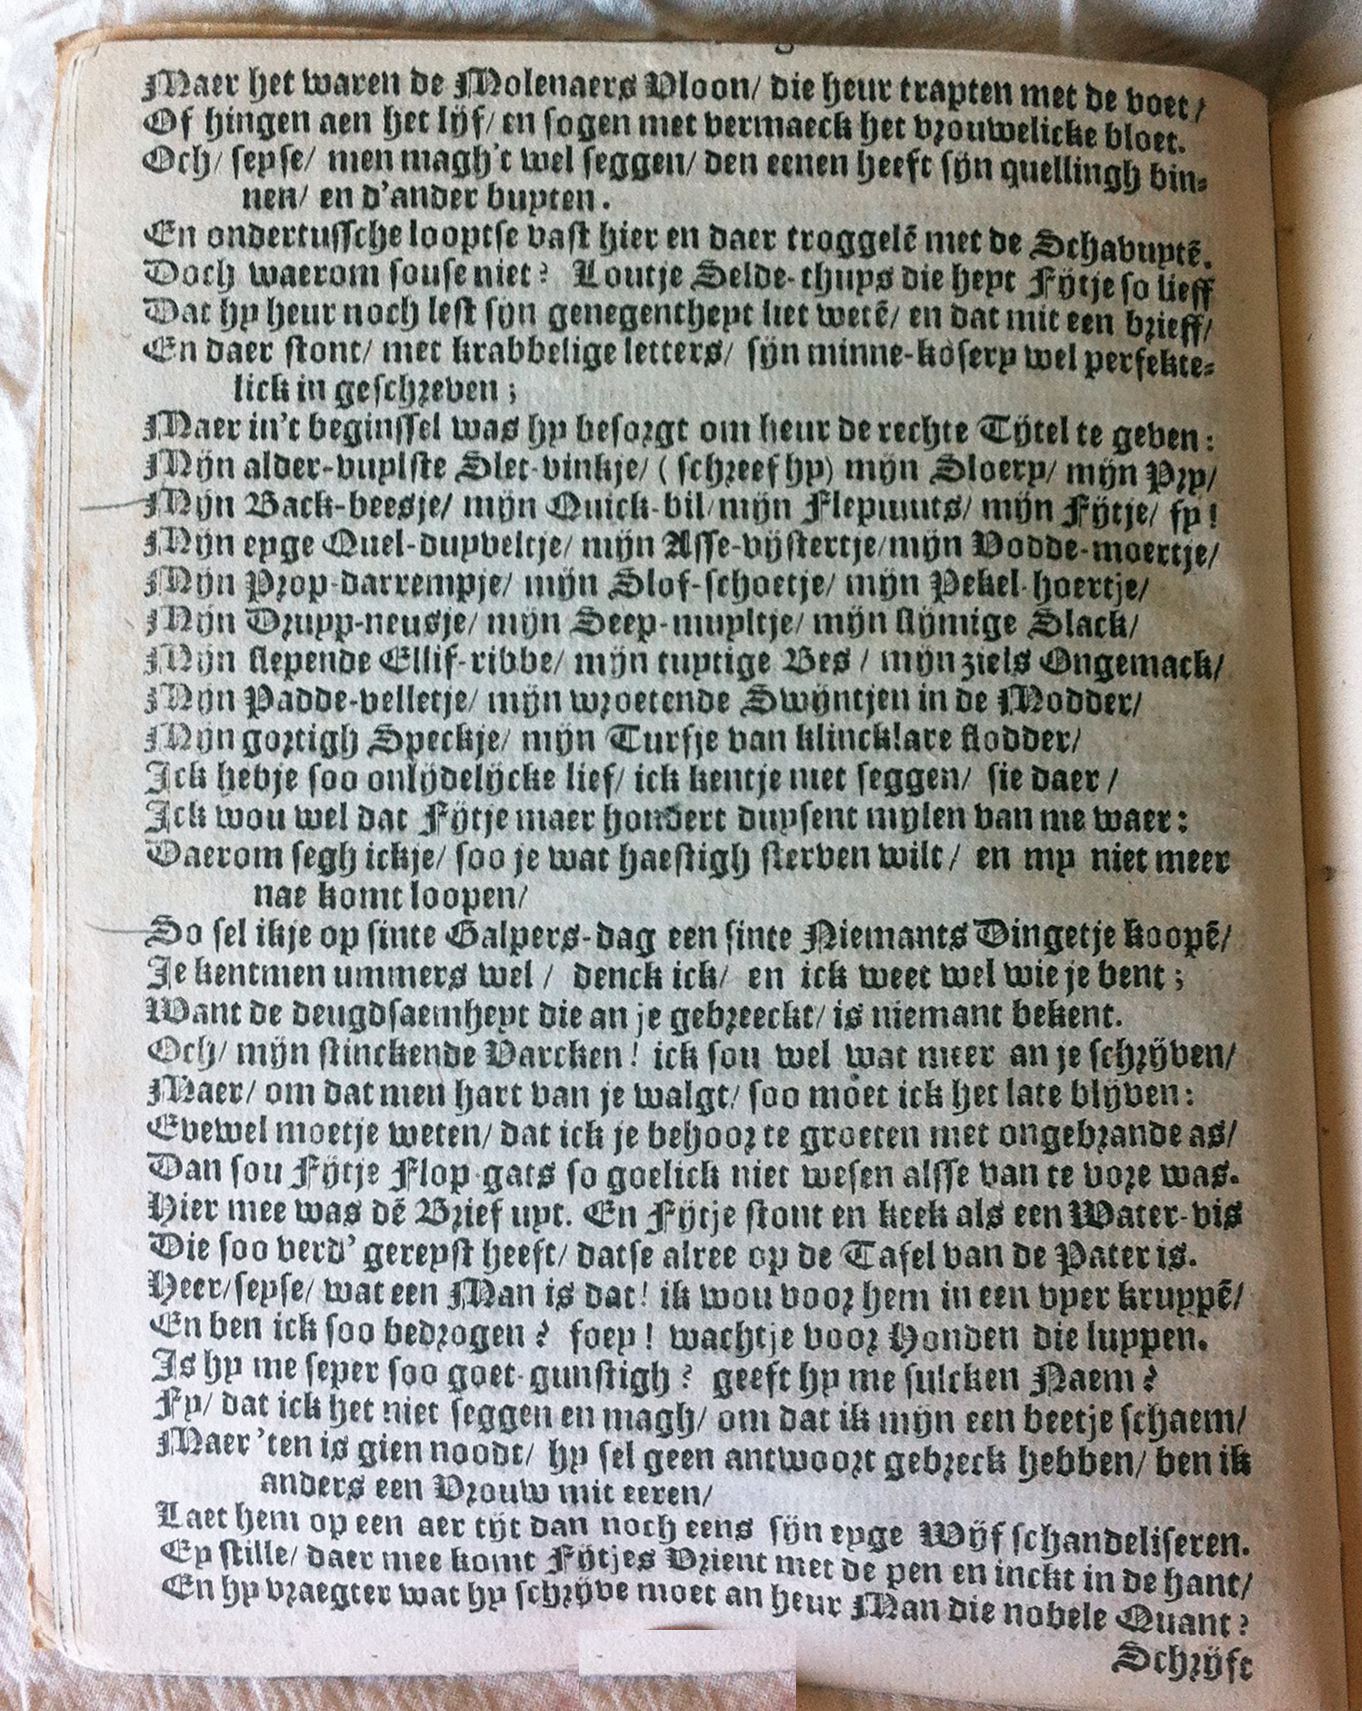 Maer het waren de Molenaers Vloon/ die heur trapten met de voet/
Of hingen aen het lijf/ en sogen met vermaeck het vrouwelicke bloet.
Och/ seyse/ men magh't wel seggen/ den eenen heeft sijn quellingh bin-
nen/ en d'ander buyten.
En ondertussche looptse vast hier en daer troggelē met de Schabuytē.
Doch waerom souse niet? Loutje Selde-thuys die heyt Fijtje so lieff
Dat hy heur noch lest sijn genegentheyt liet wetē/ en dat mit een brieff/
En daer stont/ met krabbelige letters/ sijn minne-kosery wel perfekte-
lick in geschreven;
Maer in't beginssel was hy besorgt om heur de rechte Tijtel te geven:
Mijn alder-vuylste Slet-vinkje/ (schreef hy) mijn Sloery/ mijn Pry/
Mijn Back-beesje/ mijn Quick-bil/ mijn Flepmuts/ mijn Fijtje/ fy!
Mijn eyge Quel-duyveltje/ mijn Asse-vijstertje/ mijn Vodde-moertje/
Mijn Prop-darrempje/ mijn Slof-schoetje/ mijn Pekel-hoertje/
Mijn Drupp-neusje/ mijn Seep-muyltje/ mijn slijmige Slack/
Mijn slepende Ellif-ribbe/ mijn tuytige Bes/ mijn ziels Ongemack/
Mijn Padde-velletje/ mijn wroetende Swijntjen in de Modder/
Mijn gortigh Speckje/ mijn Turfje van klincklare flodder/
Ick hebje soo onlijdelijcke lief/ ick kentje niet seggen/ sie daer/
Ick wou wel dat Fijtje maer hondert duysent mylen van me waer:
Daerom segh ickje/ soo je wat haestigh sterven wilt/ en my niet meer
nae komt loopen/
So sel ikje op sinte Galpers-dag een sinte Niemants Dingetje koopē/
Je kentmen ummers wel/ denck ick/ en ick weet wel wie je bent;
Want de deugdsaemheyt die an je gebreeckt/ is niemant bekent.
Och/ mijn stinckende Varcken! ick sou wel wat meer an je schrijven/
Maer/ om dat men hart van je walgt/ soo moet ick het late blijven:
Evewel moetje weten/ dat ick je behoor te groeten met ongebrande as/
Dan sou Fijtje Flop-gats so goelick niet wesen alsse van te vore was.
Hier mee was dē Brief uyt. En Fijtje stont en keek als een Water-vis
Die soo verd' gereyst heeft/ datse alree op de Tafel van de Pater is.
Heer/ seyse/ wat een Man is dat! ik wou voor hem in een vyer kruppē/
En ben ick soo bedrogen? foey! wachtje voor Honden die luppen.
Is hy me seper soo goet-gunstigh? geeft hy me sulcken Naem?
Fy/ dat ick het niet seggen en magh/ om dat ik mijn een beetje schaem/
Maer 'ten is gien noodt/ hy sel geen antwoort gebreck hebben/ ben ik
anders een Vrouw mit eeren/
Laet hem op een aer tijt dan noch eens sijn eyge Wijf schandeliseren.
Ey stille/ daer mee komt Fijtjes Vrient met de pen en inckt in de hant/
En hy vraegter wat hy schrijve moet an heur Man die nobele Quant?
Schrijft